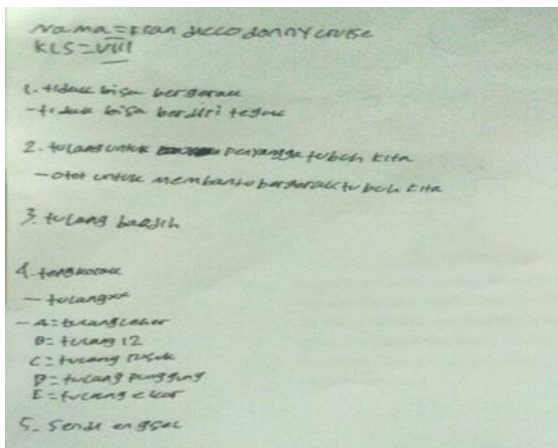 Nama = Fran decco donny cruise
KLS = VIII
1. tidak bisa bergerak
- tidak bisa berdiri tegak
2. tulang untuk penyangga tubuh kita
- otot untuk membantu bergerak tubuh kita
3. tulang
4. tengkorak
- tulang
- A = tulang leher
B = tulang 12
C = tulang rusuk
D = tulang punggung
E = tulang ekor
5. Sendi engsel